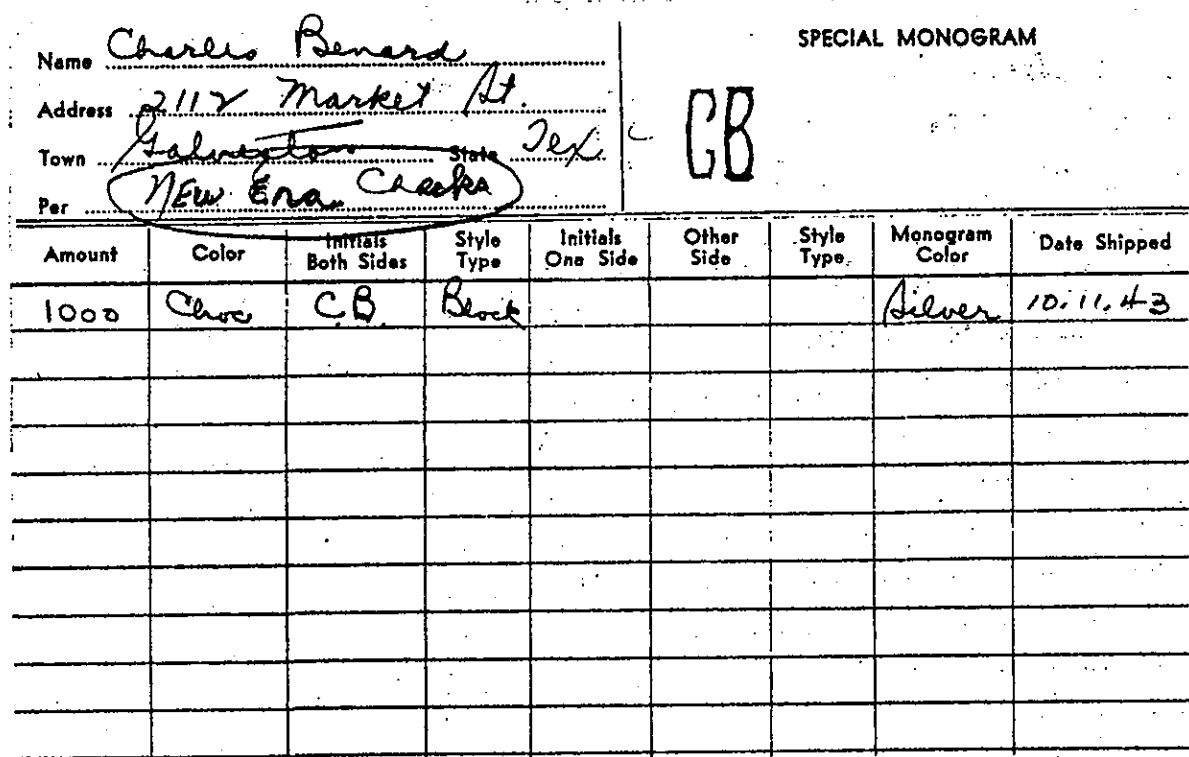 Name Charles Benard
SPECIAL MONOGRAM
Address 2112 Market St.
CB
Town Galveston State Tex
Per New Era Checks
Amount Color Initials Both Sides Style Type Initials One Side Other Side Style Type Monogram Color Date Shipped
1000 Choc C.B. Block Silver 10.11.43